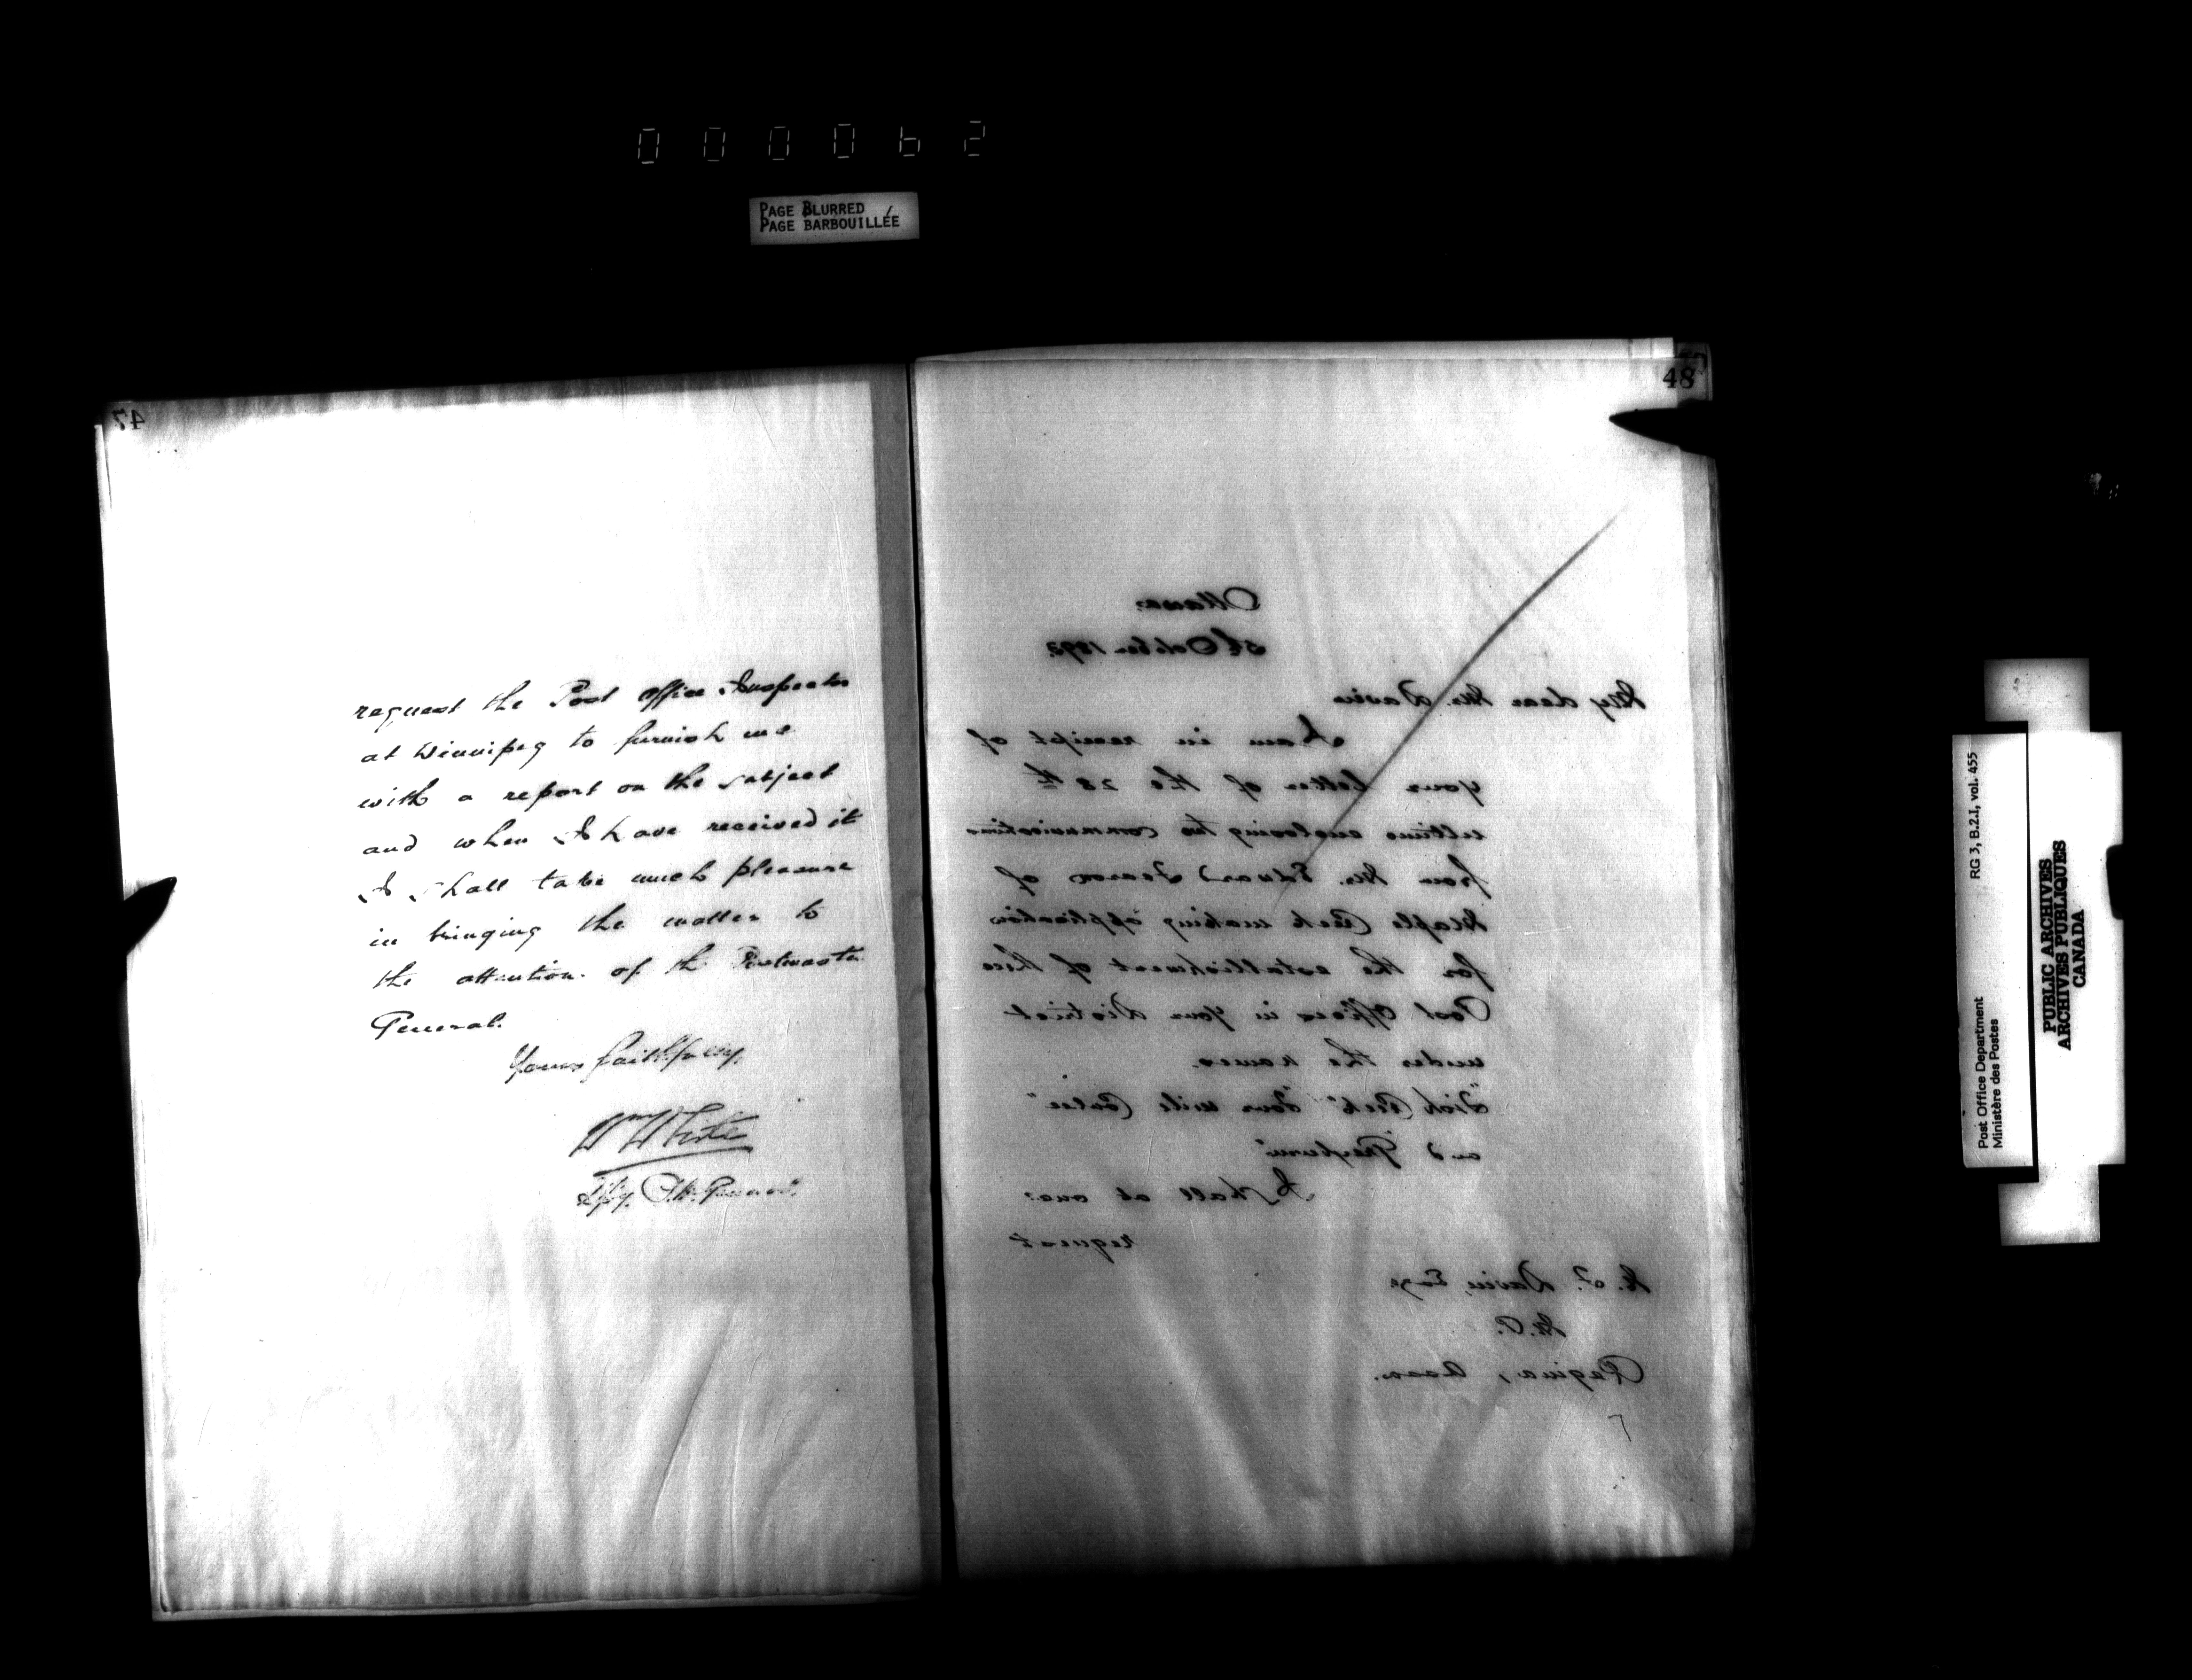 000062
PAGE BLURRED
PAGE BARBOUILLÉE
47
request the Post Office Inspector
at Winnipeg to furnish me
with a report on the subject
and when I have received it
I shall take much pleasure
in bringing the matter to
the attention of the Postmaster
General.
Yours faithfully,
Wm White
Dpy. P.M. General.
48
Ottawa:
5th October 1892.
My dear Mr. Davin
I am in receipt of
your letter of the 28th
ultimo enclosing two communications
from Mr. Edward Fearon of
Maple Creek making application
for the establishment of three
Post Offices in your District
under the names.
"Fish Creek" "Four mile Coulee"
and
I shall at once
request
N. F. Davin, Esqr
M.P.
Regina, Assa.
RG 3, B.2.I, vol. 455
Post Office Department
Ministère des Postes
PUBLIC ARCHIVES
ARCHIVES PUBLIQUES
CANADA